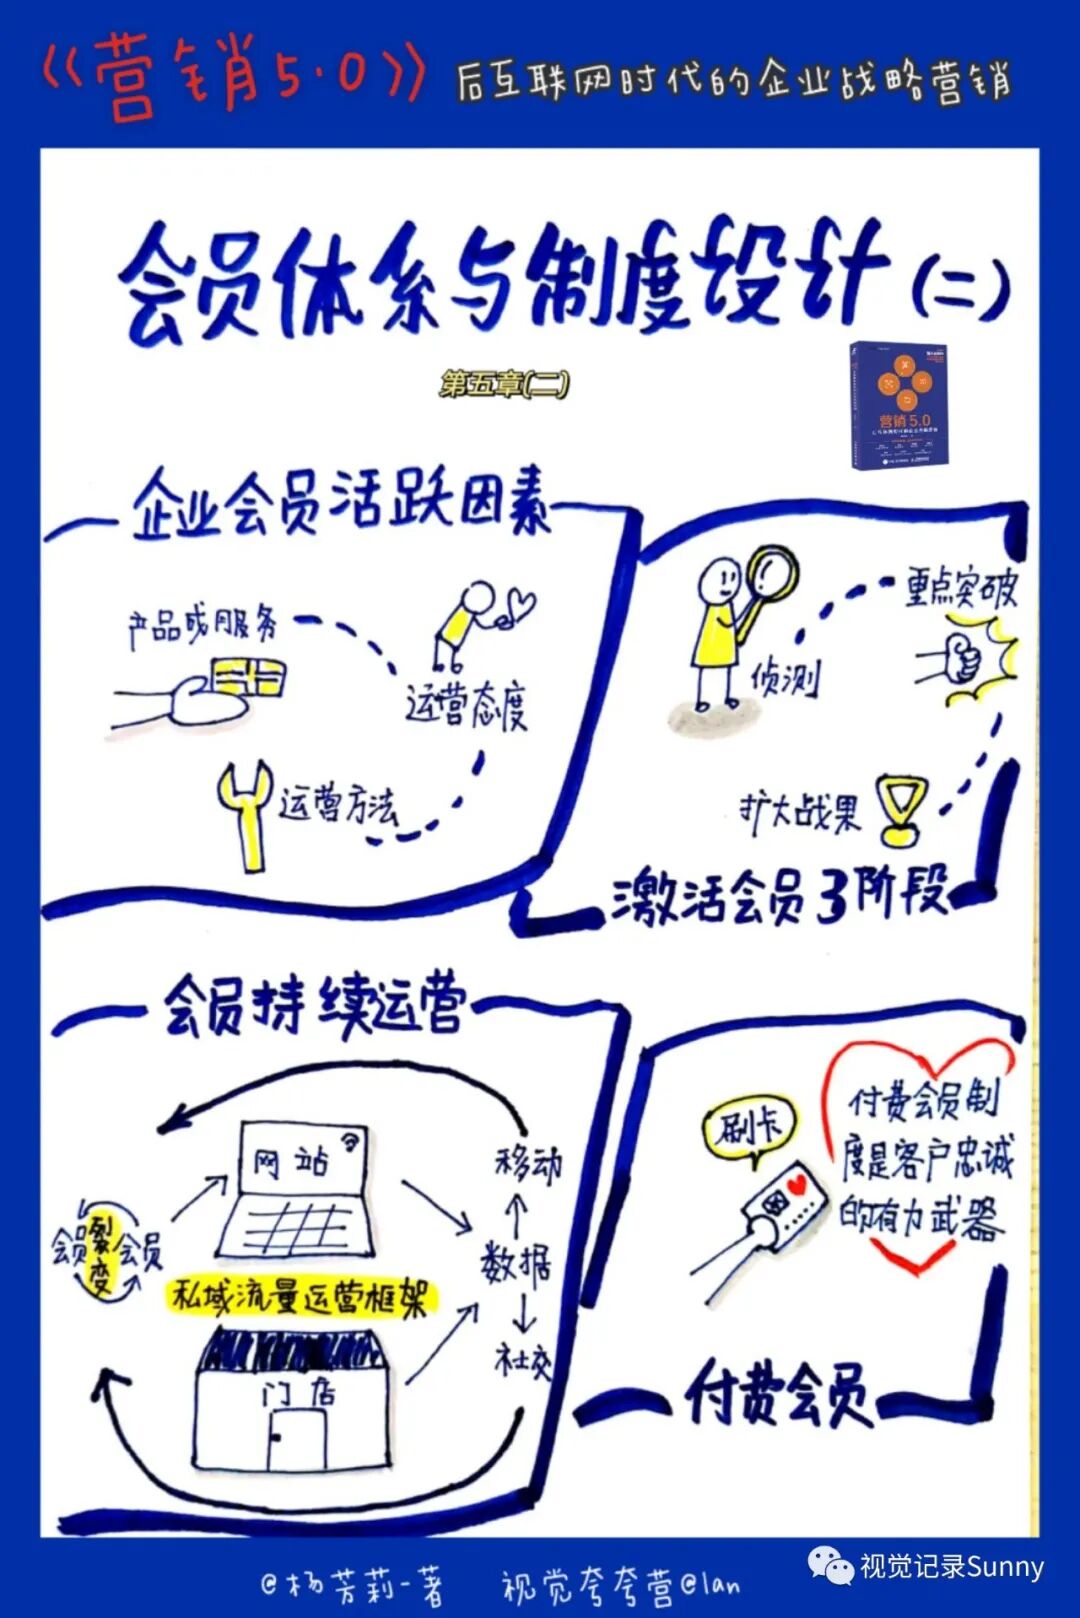 《营销5.0》后互联网时代的企业战略营销
会员体系与制度设计(二)
第五章(二)
营销5.0
企业会员活跃因素
产品或服务
运营态度
运营方法
侦测
重点突破
扩大战果
激活会员3阶段
会员持续运营
网站
移动
会员裂变会员
数据
私域流量运营框架
社交
门店
刷卡
付费会员制
度是客户忠诚
的有力武器
付费会员
@杨芳莉-著 视觉夸夸营@lan
视觉记录Sunny